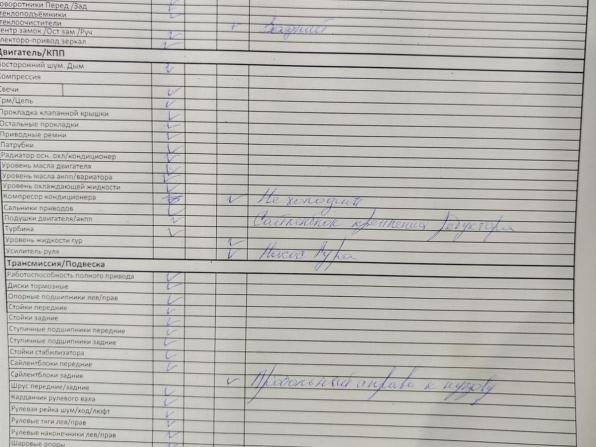 оворотники Перед /Зад
стеклоподъёмники
стеклоочистители
центр замок /Ост зам /Руч
электоро-привод зеркал
Двигатель/КПП
посторонний шум. Дым
Компрессия
Свечи
Грм/Цепь
Прокладка клапанной крышки
Остальные прокладки
Приводные ремни
Патрубки
Радиатор осн. охл/кондиционер
Уровень масла двигателя
Уровень масла акпп/вариатора
Уровень охлаждающей жидкости
Компресор кондиционера Не холодит
Сальники приводов
Подушки двигателя/акпп Сайлентблок крепления Редуктора
Турбина
Уровень жидкости гур
Усилитель руля Насос Гура
Трансмиссия/Подвеска
Работоспособность полного привода
Диски тормозные
Опорные подшипники лев/прав
Стойки передние
Стойки задние
Ступичные подшипники передние
Ступичные подшипники задние
Стойки стабилизатора
Сайлентблоки передние
Сайлентблоки задние Продольный справа к кузову
Шрус передние/задние
Карданчик рулевого вала
Рулевая рейка шум/ход/люфт
Рулевые тяги лев/прав
Рулевые наконечники лев/прав
Шаровые опоры